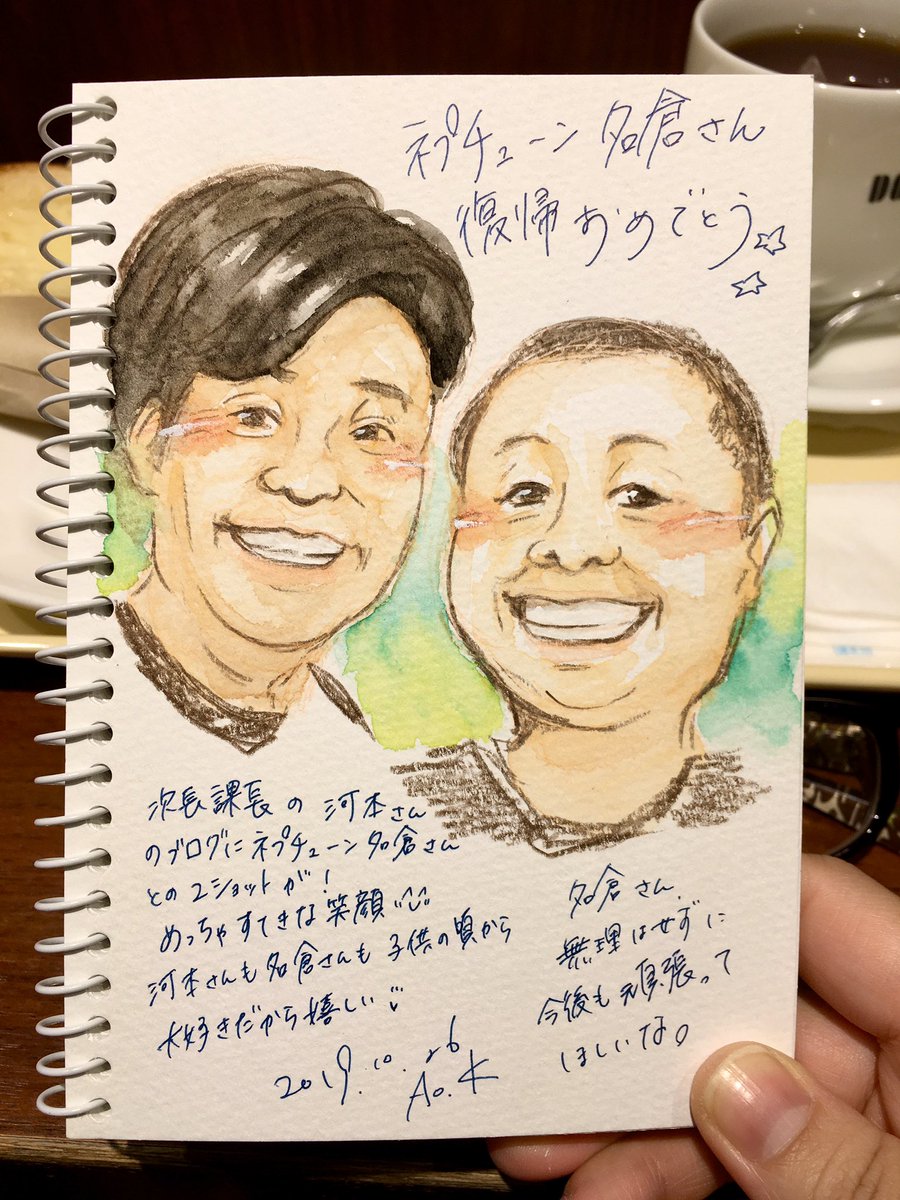 ネプチューン 名倉さん
復帰おめでとう
次長課長の 河本さん
のブログにネプチューン名倉さん
との2ショットが!
めっちゃすてきな笑顔
河本さんも名倉さんも子供の頃から
大好きだから嬉しい
2019.10.26
Ao.K
名倉さん
無理はせずに
今後も頑張って
ほしいな。
DO